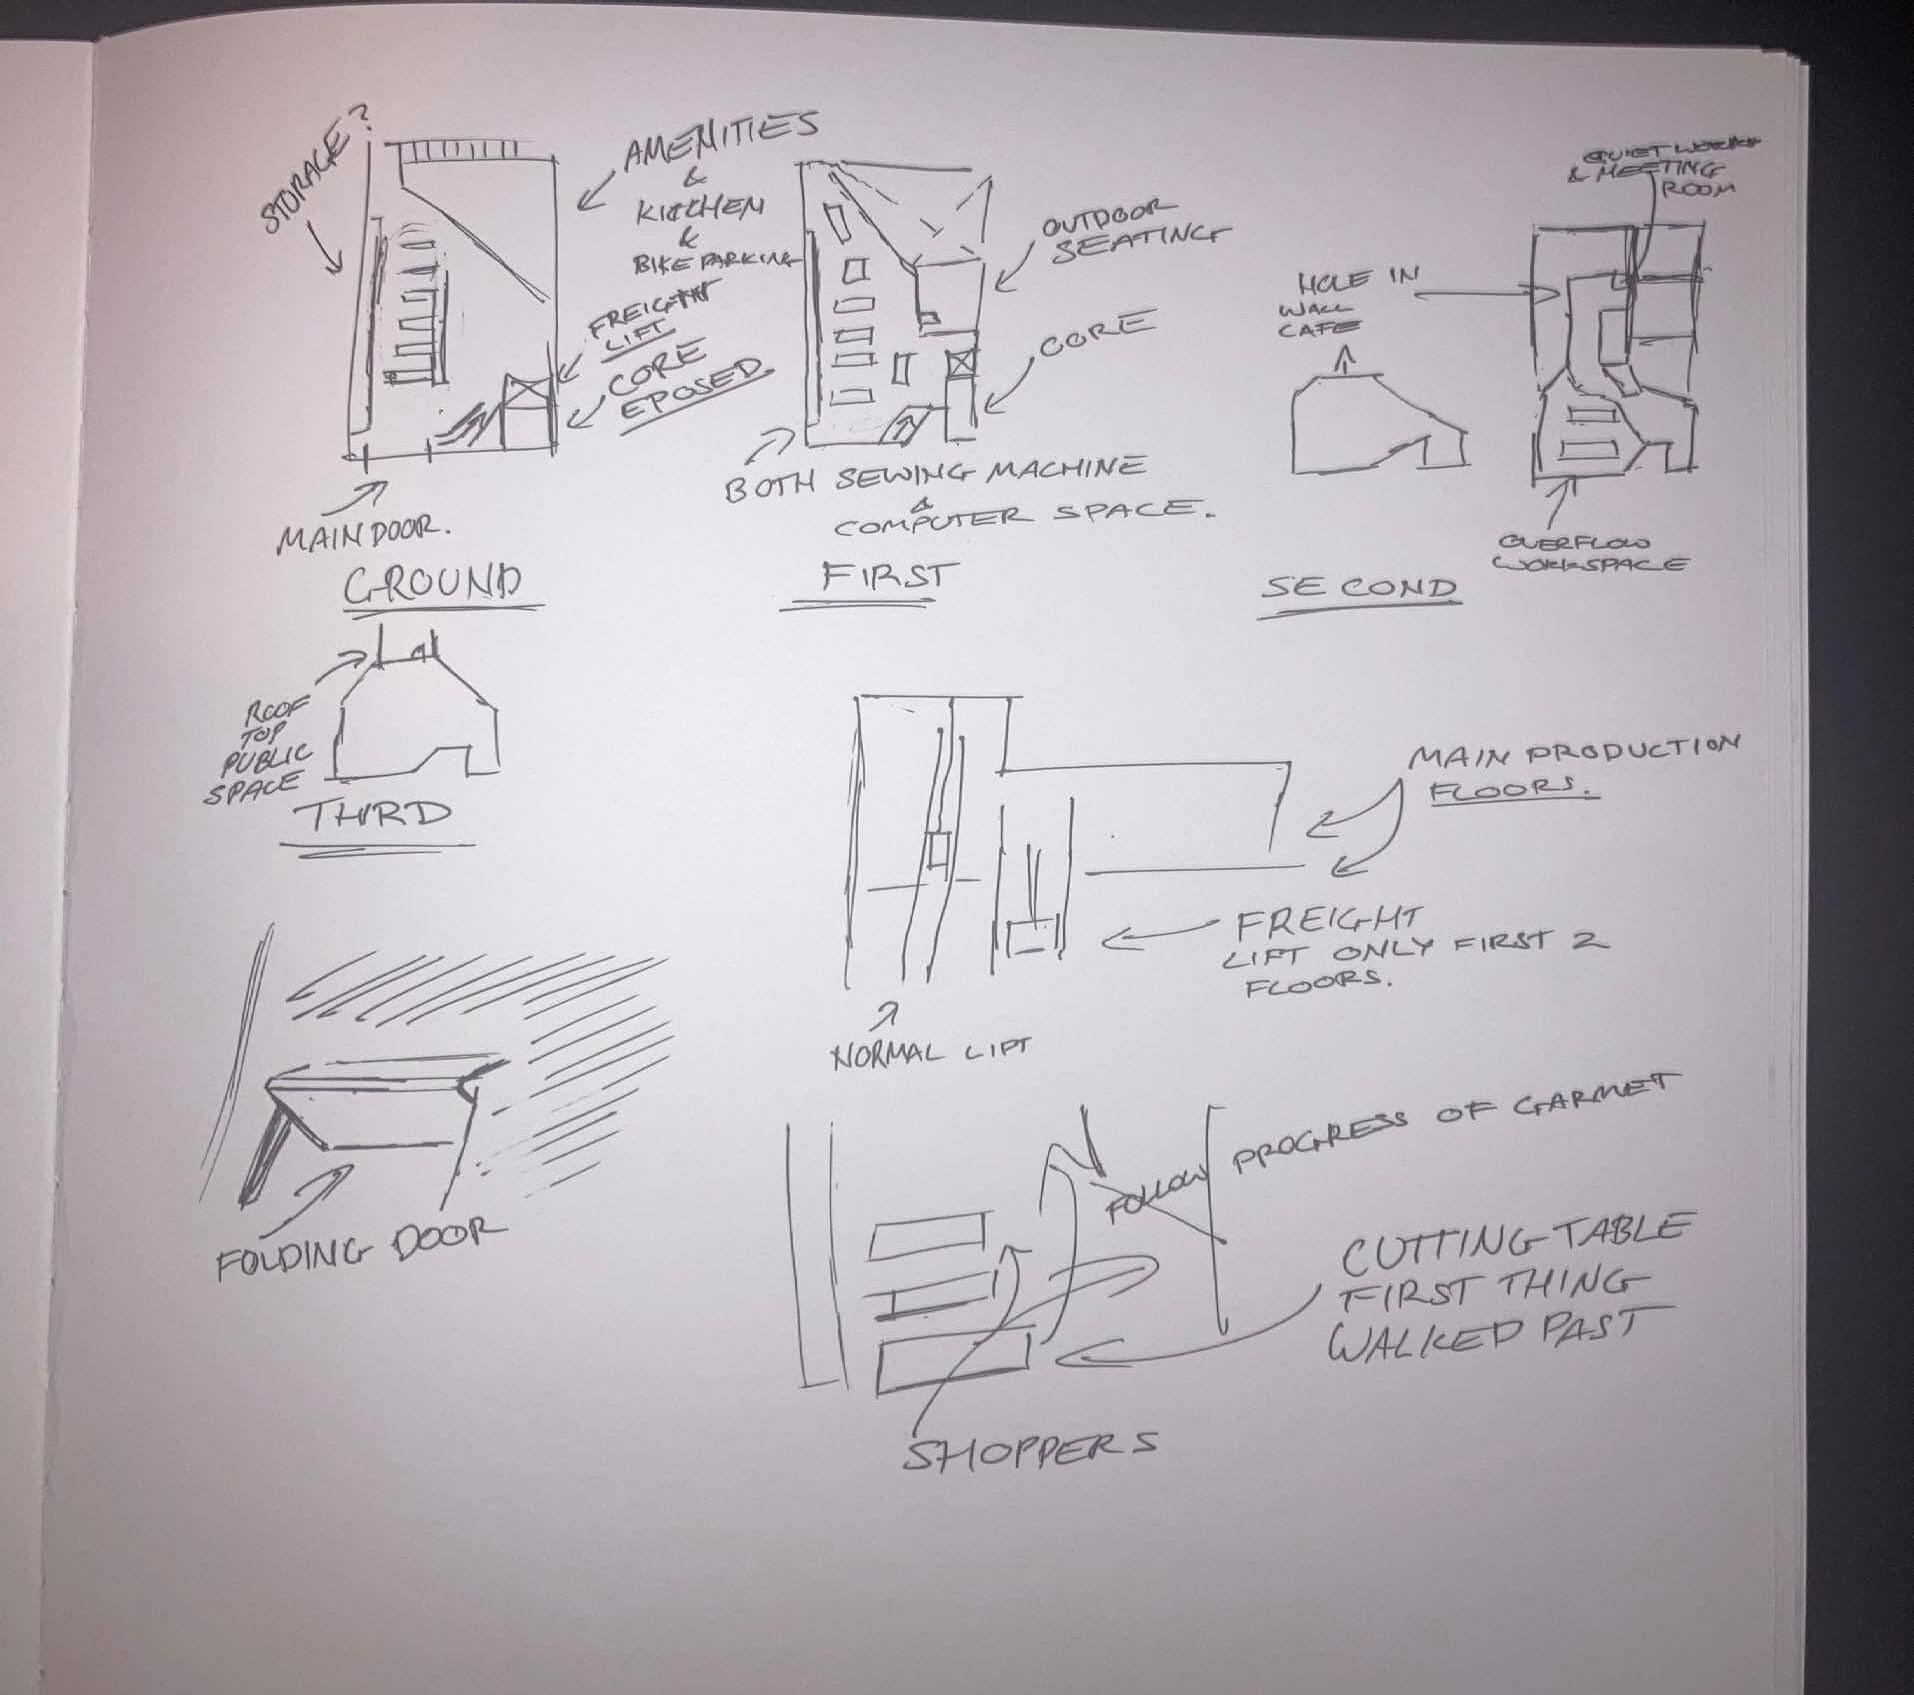 STORAGE?
AMENITIES
&
KITCHEN
&
BIKE PARKING
FREIGHT
LIFT
CORE
EPOSED
MAIN DOOR.
GROUND
OUTDOOR
SEATING
CORE
BOTH SEWING MACHINE
&
COMPUTER SPACE.
FIRST
QUIET WORK
& MEETING
ROOM
HOLE IN
WALL
CAFE
OVERFLOW
WORKSPACE
SECOND
ROOF
TOP
PUBLIC
SPACE
THIRD
MAIN PRODUCTION
FLOORS.
FREIGHT
LIFT ONLY FIRST 2
FLOORS.
NORMAL LIFT
FOLDING DOOR
FOLLOW PROGRESS OF GARMET
CUTTING TABLE
FIRST THING
WALKED PAST
SHOPPERS